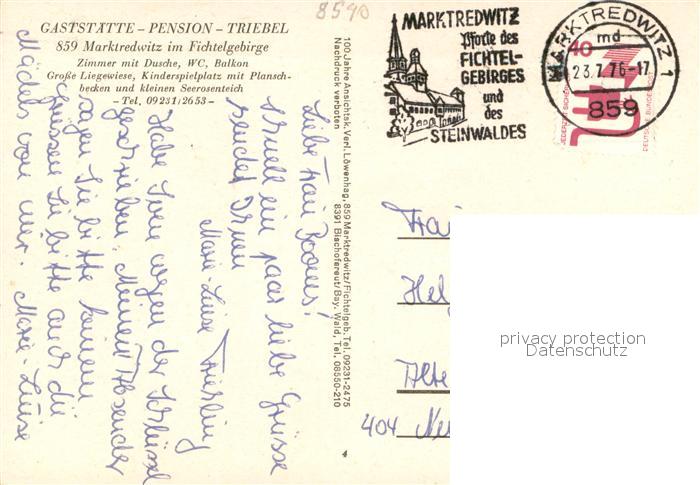 8590
GASTSTÄTTE – PENSION – TRIEBEL
859 Marktredwitz im Fichtelgebirge
Zimmer mit Dusche, WC, Balkon
Große Liegewiese, Kinderspielplatz mit Plansch-
becken und kleinen Seerosenteich
- Tel. 09231/2653 -
Liebe Frau
schnell ein paar liebe Grüsse
sendet Ihnen
Marie-Luise
Habe Sven wegen der Schlüssel
geschrieben. Meinen Absender
sagen Sie bitte keinem
grüssen Sie bitte auch die
Mädels von mir. Marie-Luise
100 Jahre Ansichtsk.-Verl. Löwenhag, 859 Marktredwitz/Fichtelgeb. Tel. 09231-2475
Nachdruck verboten 8391 Bischofsreut/Bay. Wald, Tel. 08550-210
4
MARKTREDWITZ
Pforte des
FICHTEL-
GEBIRGES
und
des
STEINWALDES
MARKTREDWITZ 1
md
23.7.76-17
859
40
JEDERZEIT SICHERHEIT
DEUTSCHE BUNDESPOST
Hel
Alte
404 Neu
privacy protection
Datenschutz